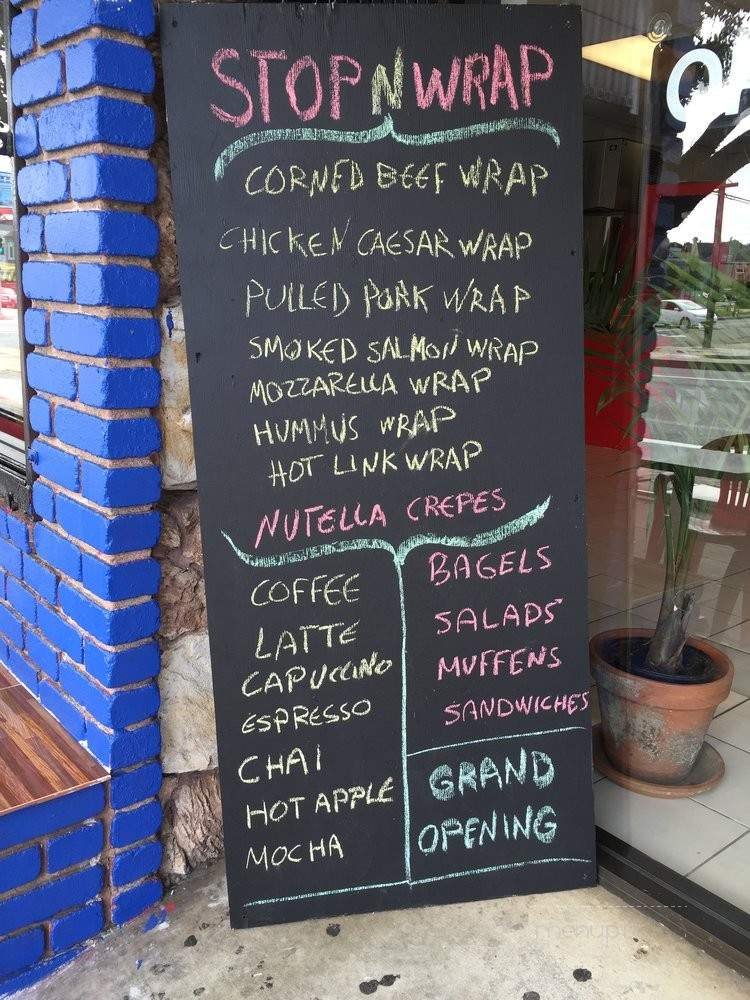 STOP N WRAP
CORNED BEEF WRAP
CHICKEN CAESAR WRAP
PULLED PORK WRAP
SMOKED SALMON WRAP
MOZZARELLA WRAP
HUMMUS WRAP
HOT LINK WRAP
NUTELLA CREPES
COFFEE
LATTE
CAPUCCINO
ESPRESSO
CHAI
HOT APPLE
MOCHA
BAGELS
SALADS
MUFFENS
SANDWICHES
GRAND
OPENING